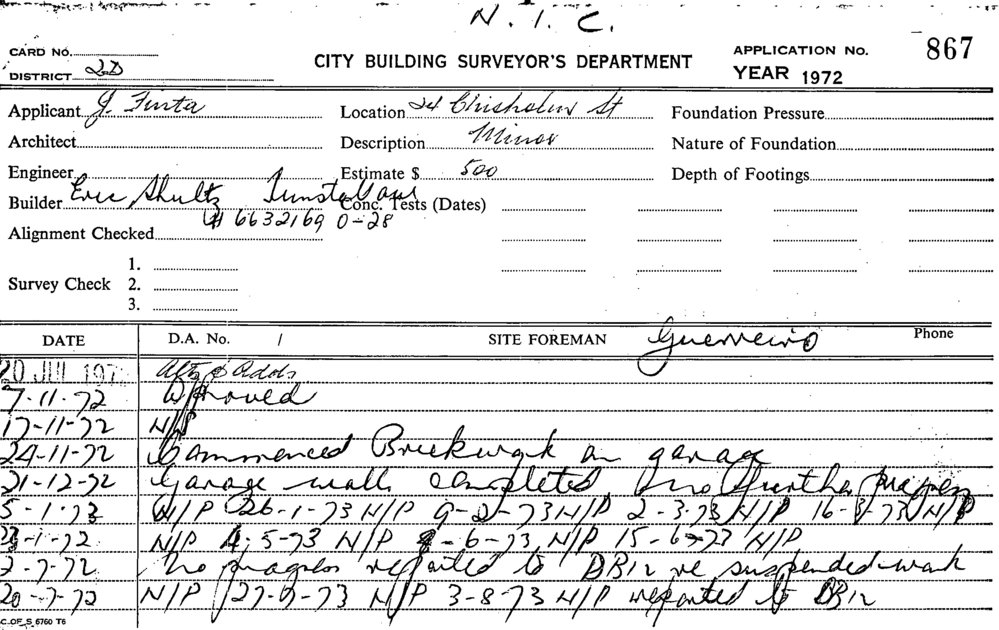 N. I. C.
CARD NO.
DISTRICT 2D
CITY BUILDING SURVEYOR'S DEPARTMENT
APPLICATION NO. 867
YEAR 1972
Applicant J. Finta Location 24 Chisholm St Foundation Pressure
Architect Description Minor Nature of Foundation
Engineer Estimate $ 500 Depth of Footings
Builder Eric Shultz Conc. Tests (Dates)
6632169 0-28
Alignment Checked
1.
Survey Check 2.
3.
DATE D.A. No. / SITE FOREMAN Guerreiro Phone
20 JUL 197 Alts & Adds
7-11-72 Approved
17-11-72 N/S
24-11-72 Commenced Brickwork on garage
21-12-72 Garage walls completed no further progress
5-1-73 N/P 26-1-73 N/P 9-2-73 N/P 2-3-73 N/P 16-3-73 N/P
-1-72 N/P 4-5-73 N/P -6-73 N/P 15-6-73 N/P
2-7-72 No progress reported to DB12 re suspended work
20-7-72 N/P 27-7-73 N/P 3-8-73 N/P reported to DB12
C.OF S 6760 T6